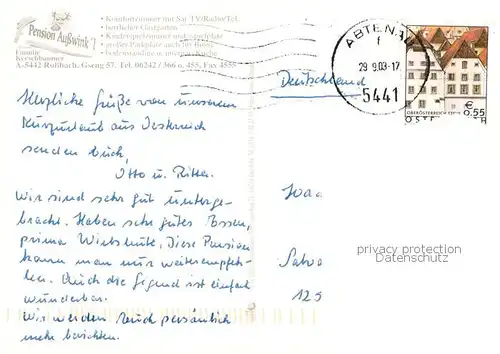 Pension Außwink'l
• Komfortzimmer mit Sat-TV/Radio/Tel.
• herrlicher Gastgarten
• Kinderspielzimmer und -spielplatz
• großer Parkplatz auch für Busse
Familie
A-5442 Rußbach, Gseng 57, Tel. 06242 / 366 o. 455, Fax 4555
ABTENAU
f
29 9.03-17
5441
€
0,55
OBERÖSTERREICH
Deutschland
Herzliche Grüße von unserem
Kurzurlaub aus Österreich
senden Euch,
Otto u.
Wir sind sehr gut unterge-
bracht. Haben sehr gutes Essen,
prima Wirtsleute, diese Pension
kann man nur weiterempfeh-
len. Auch die Gegend ist einfach
wunderbar.
Wir werden Euch persönlich
mehr berichten.
125
privacy protection
Datenschutz